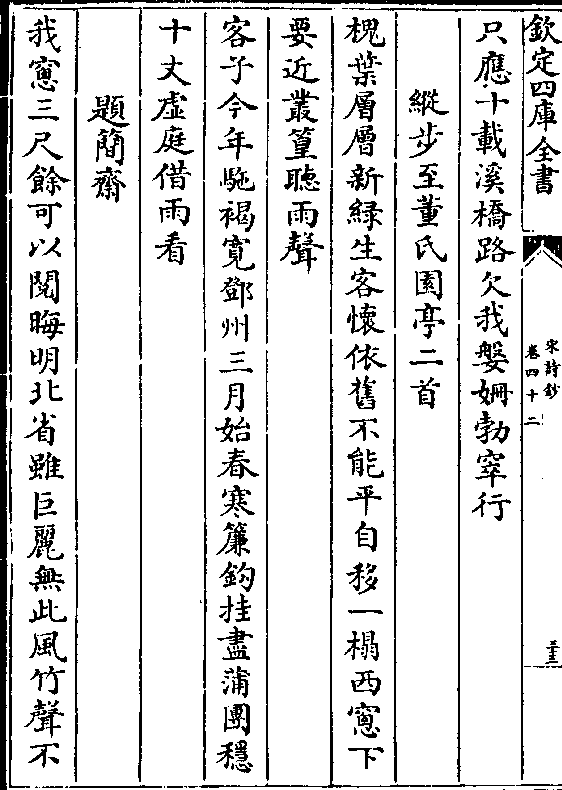 欽定四庫全書
宋詩鈔
卷四十二
三十三
只應十載溪橋路欠我媻姍勃窣行
縱步至董氏園亭二首
槐葉層層新緑生客懷依舊不能平自移一榻西窻下
要近叢篁聴雨聲
客子今年駞褐寛鄧州三月始春寒簾鈎挂盡蒲團穏
十丈虛庭借雨看
題簡齋
我窻三尺餘可以閱晦明北省雖巨麗無此風竹聲不